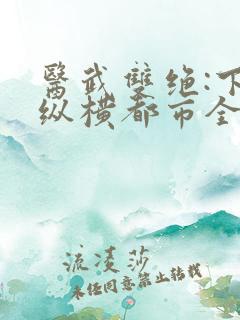 醫武雙绝:下
纵横都市全
流凌莎
未经同意禁止转载